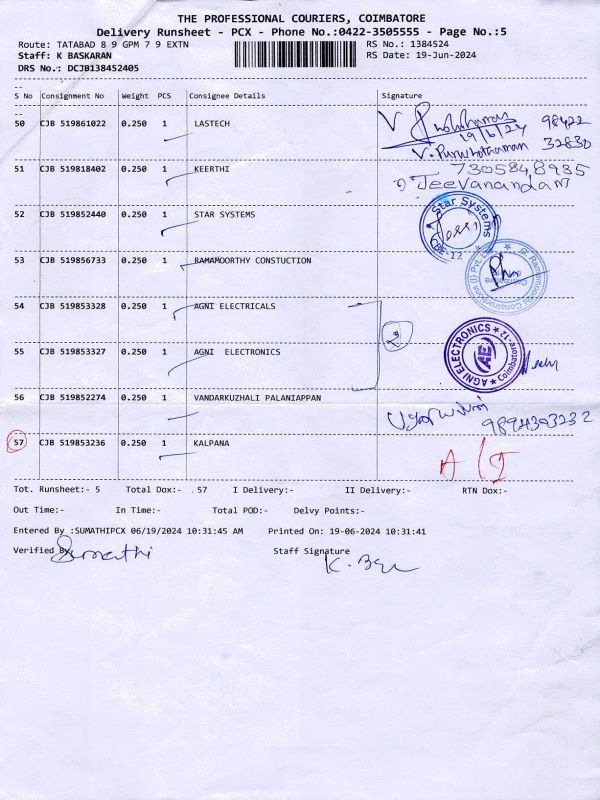 THE PROFESSIONAL COURIERS, COIMBATORE
Delivery Runsheet - PCX - Phone No.:0422-3505555 - Page No.:5
Route: TATABAD 8 9 GPM 7 9 EXTN RS No.: 1384524
Staff: K BASKARAN RS Date: 19-Jun-2024
DRS No.: DCJB138452405
S No Consignment No Weight PCS Consignee Details Signature
50 CJB 519861022 0.250 1 LASTECH 98422
19/6/24
V. 32830
51 CJB 519818402 0.250 1 KEERTHI 7305848935
Jeevanandam
52 CJB 519852440 0.250 1 STAR SYSTEMS Star Systems CBE-12
53 CJB 519856733 0.250 1 RAMAMOORTHY CONSTUCTION
54 CJB 519853328 0.250 1 AGNI ELECTRICALS
55 CJB 519853327 0.250 1 AGNI ELECTRONICS 2 AGNI ELECTRONICS Coimbatore-12 AE
56 CJB 519852274 0.250 1 VANDARKUZHALI PALANIAPPAN
9894393232
57 CJB 519853236 0.250 1 KALPANA
Tot. Runsheet:- 5 Total Dox:- .57 I Delivery:- II Delivery:- RTN Dox:-
Out Time:- In Time:- Total POD:- Delvy Points:-
Entered By :SUMATHIPCX 06/19/2024 10:31:45 AM Printed On: 19-06-2024 10:31:41
Verified By Sumathi Staff Signature